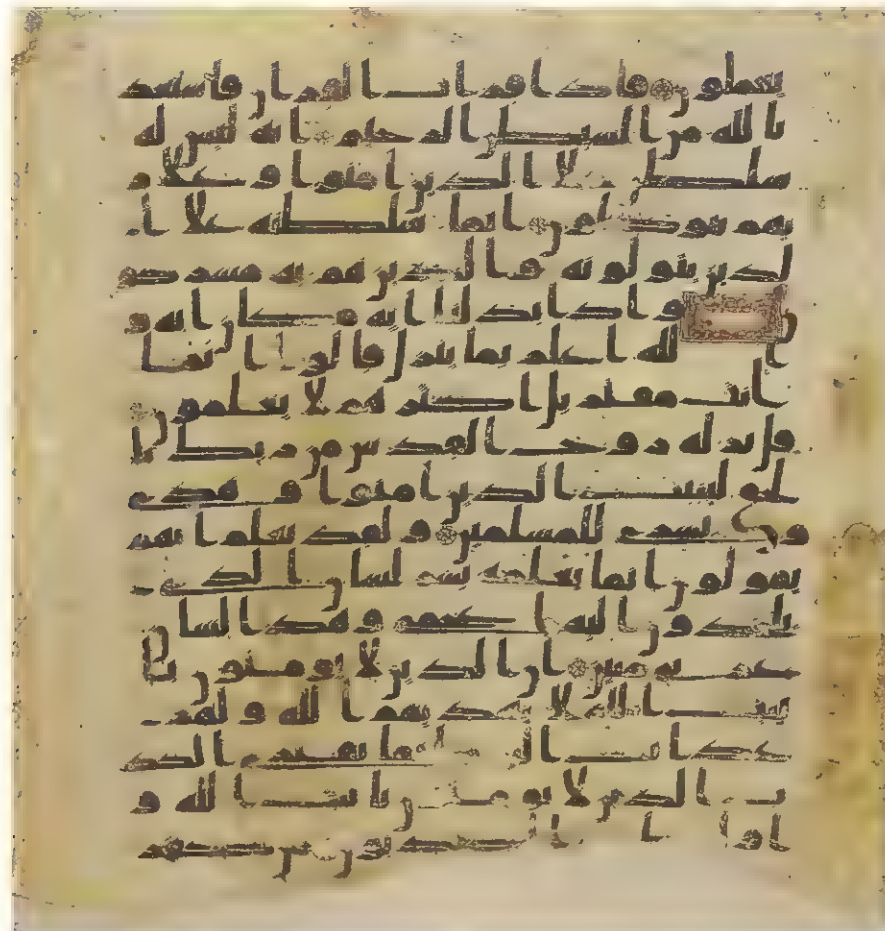 يعملون فاذا قرات القران فاستعذ
بالله من الشيطن الرجيم انه ليس له
سلطن علا الذين امنوا وعلا ر
بهم يتوكلون انما سلطنه علا ا
لذين يتولونه والذين هم به مشركو
ن واذا بدلنا ايه مكان ايه و
الله اعلم بما ينزل قالوا انما
انت مفتر بل اكثرهم لا يعلمون
قل نزله روح القدس من ربك با
لحق ليثبت الذين امنوا وهدى
وبشرى للمسلمين ولقد نعلم انهم
يقولون انما يعلمه بشر لسان الذي
يلحدون اليه اعجمي وهذا لسان
عربي مبين ان الذين لا يومنون با
يت الله لا يهديهم الله ولهم
عذاب اليم انما يفتري الكذ
ب الذين لا يومنون بايت الله و
اولئك الكذبون من كفر